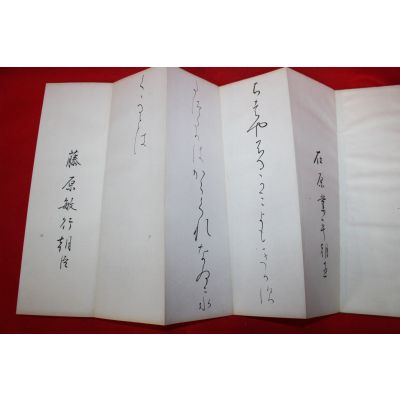 在原業平朝臣
ちはやふるかみよもきかす
たつたかはからくれなゐに水
くゝるとは
藤原敏行朝臣